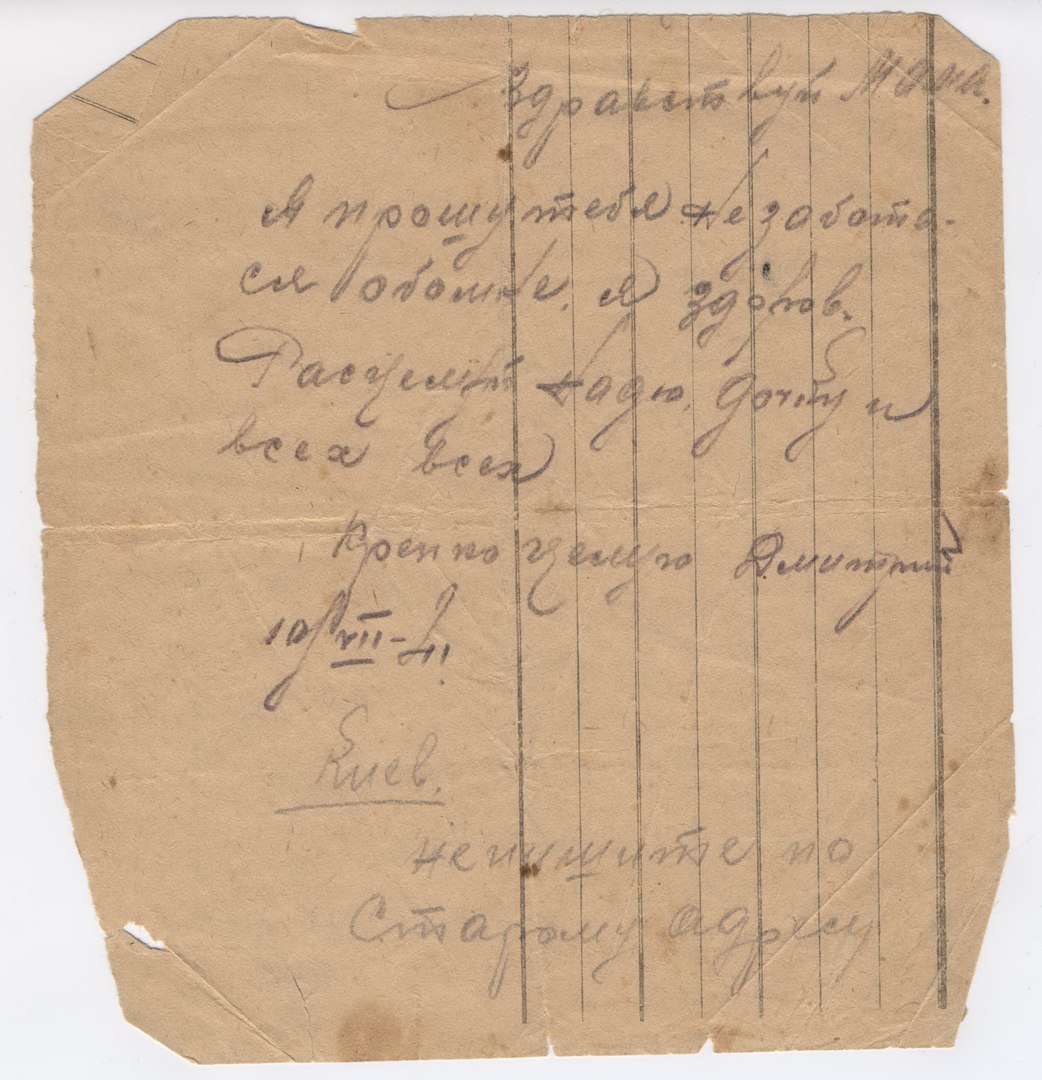 Здравствуй Мама.
Я прошу тебя не забота-
ся обомне. Я здоров.
Расцелуй Надю, дочку и
всех всех
Крепко целую Дмитрий
10/VII-41
Киев.
непишите по
Старому адресу